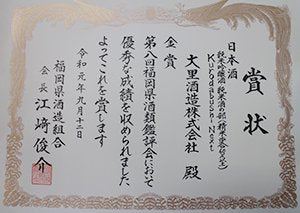 賞状
日本酒
純米吟醸酒 純米酒の部
Kurodabushi-Next
大里酒造株式会社 殿
金賞
第八回福岡県酒類鑑評会において
優秀な成績を収められました
よってこれを賞します
令和元年九月十二日
福岡県酒造組合
会長 江崎俊介